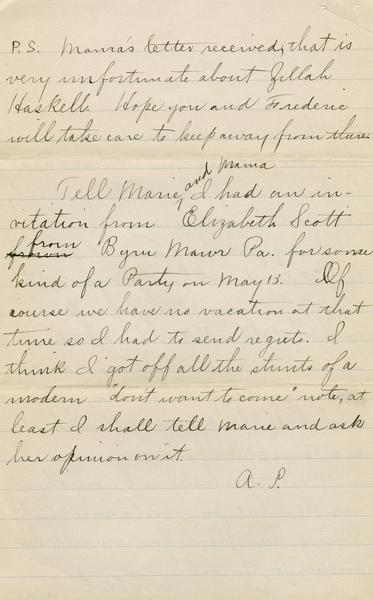 P.S. Mama's letter received, that is
very unfortunate about Zillah
Haskell. Hope you and Frederic
will take care to keep away from there.
and Mama
Tell Marie, I had an in-
vitation from Elizabeth Scott
from
Byrn Mawr Pa. for some
kind of a Party on May 13. Of
course we have no vacation at that
time so I had to send regrets. I
think I got off all the stunts of a
modern "dont want to come" note, at
least I shall tell Marie and ask
her opinion on it.
A. P.